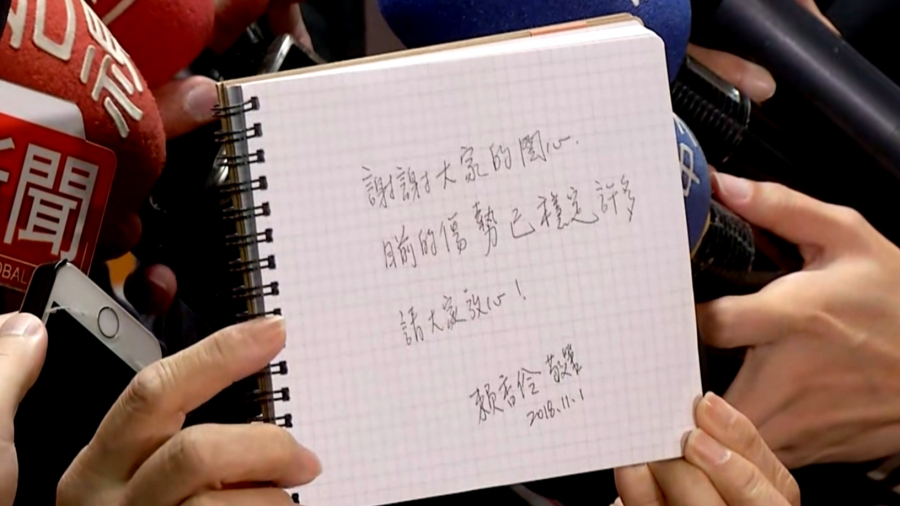 謝謝大家的關心.
目前的傷勢已穩定許多
請大家放心！
賴香伶 敬筆
2018.11.1
聞
OBAL
中